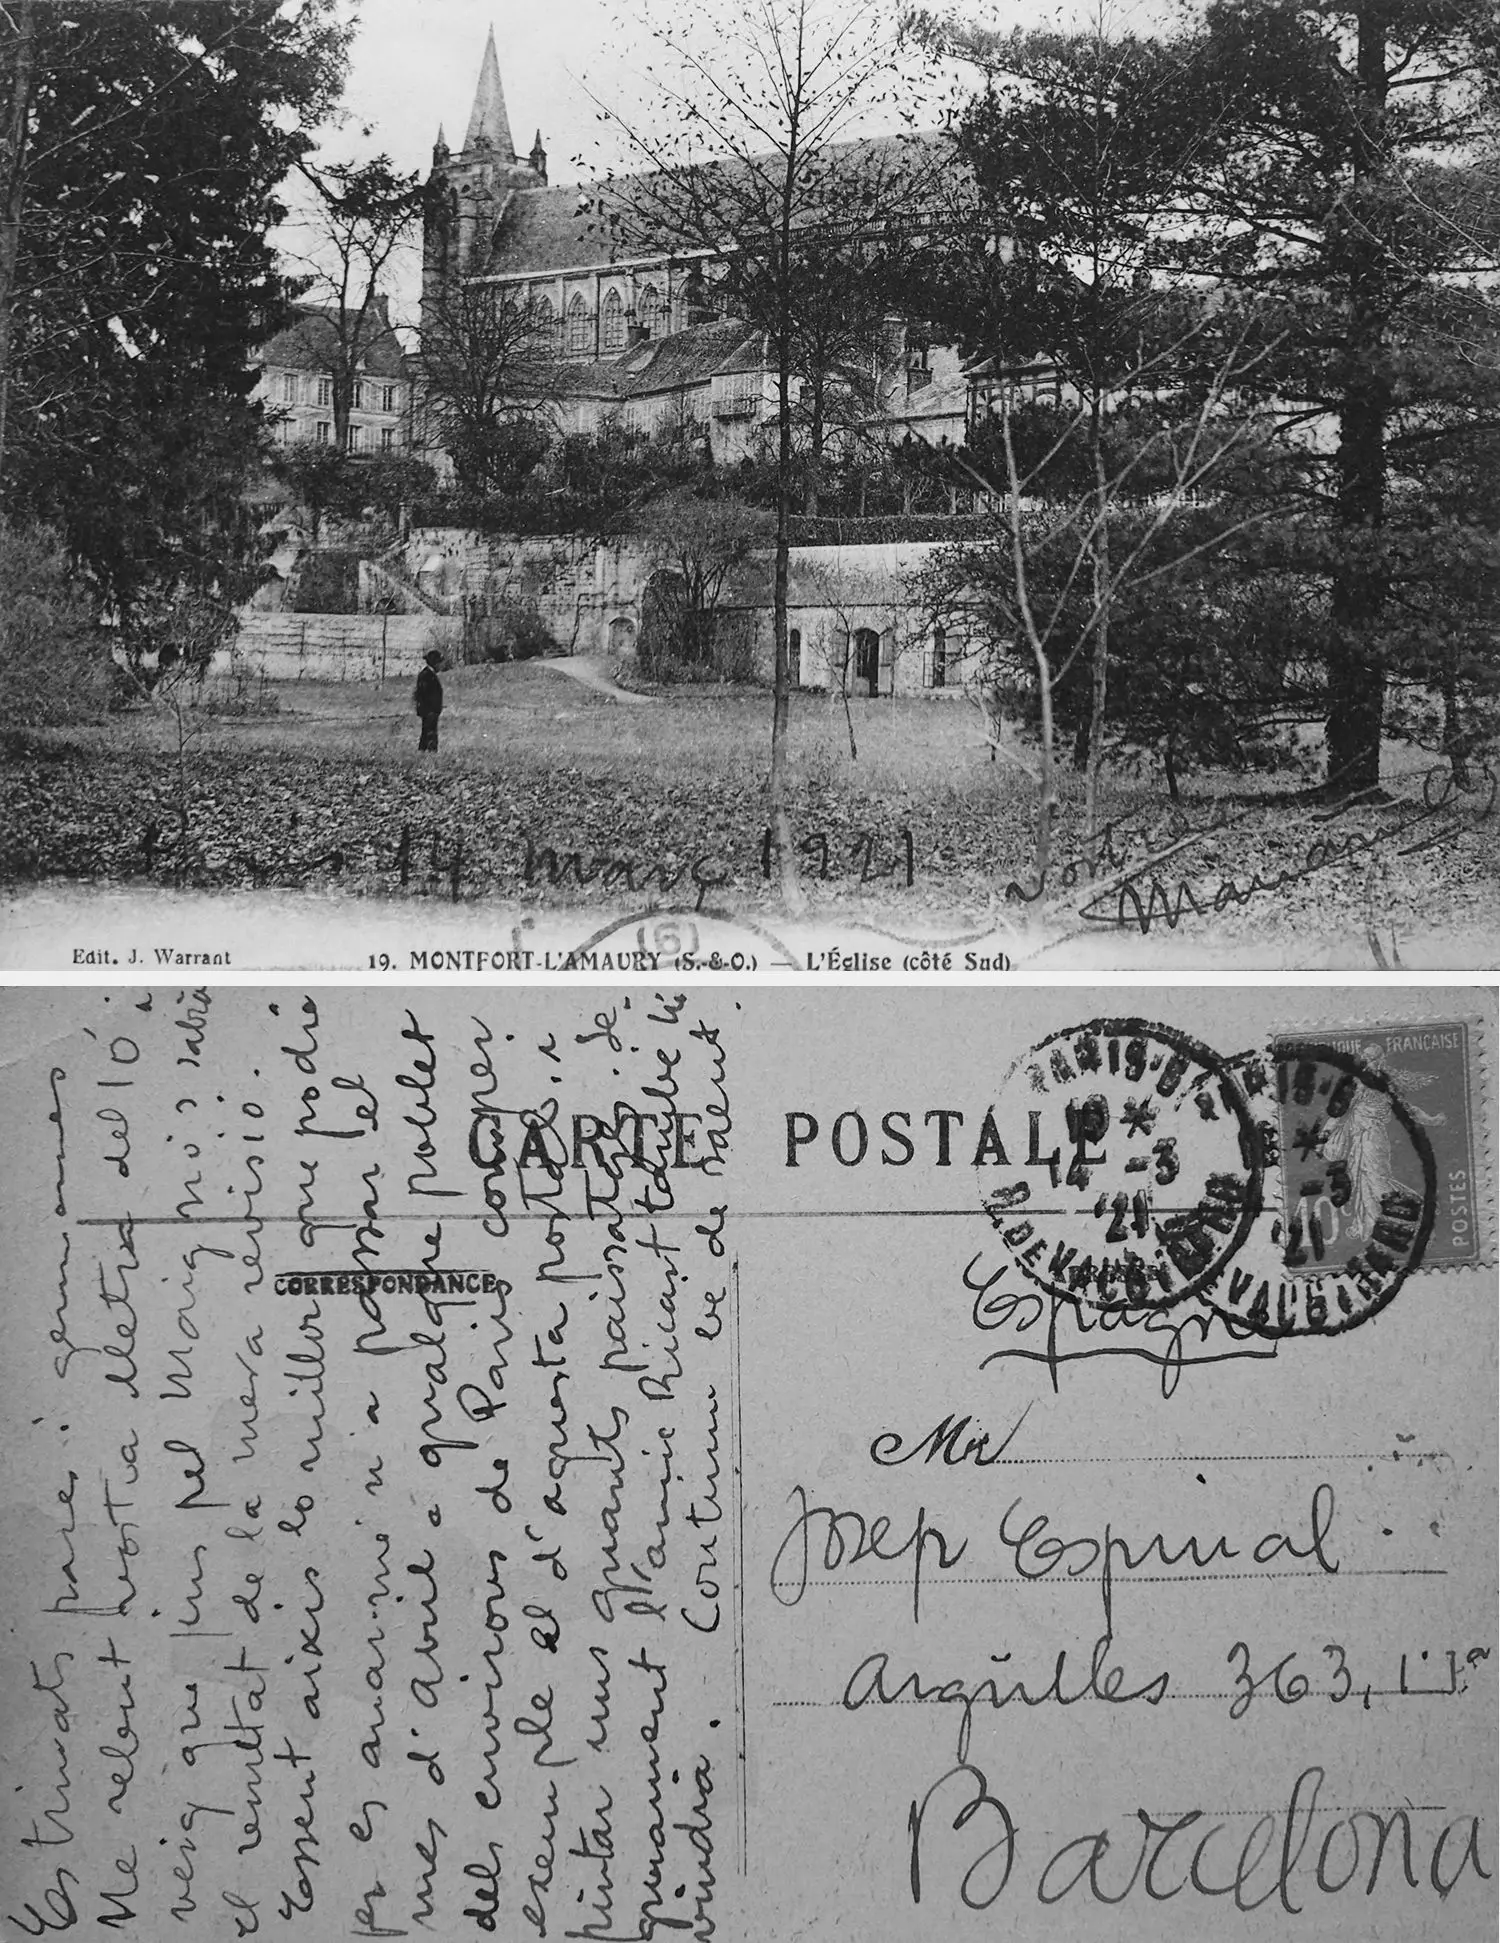 Paris 14 març 1921
vostre
Marian
Edit. J. Warrant
19. MONTFORT-L'AMAURY (S.-&-O.) — L'Église (côté Sud)
Estimats pares i germanes
He rebut vostra lletra del 10 i
veig que fins pel Maig no's sabrà
el resultat de la meva revisió.
Essent aixís lo millor que podré
fer es anar-me'n a passar el
mes d'Abril a qualque poblet
dels environs de Paris com per
exemple el d'aquesta postal i
pintar uns quants paisatges. Se-
gurament l'amic Ricart també hi
vindrà. Continuo be de salut.
CARTE POSTALE
CORRESPONDANCE
PARIS-6
14 -3
'21
R. DE VAUGIRARD
PARIS-6
-3
'21
VAUGIRARD
REPUBLIQUE FRANÇAISE
10c
POSTES
Espagne
Mr
Josep Espinal
Argüelles 363, 1er 1a
Barcelona